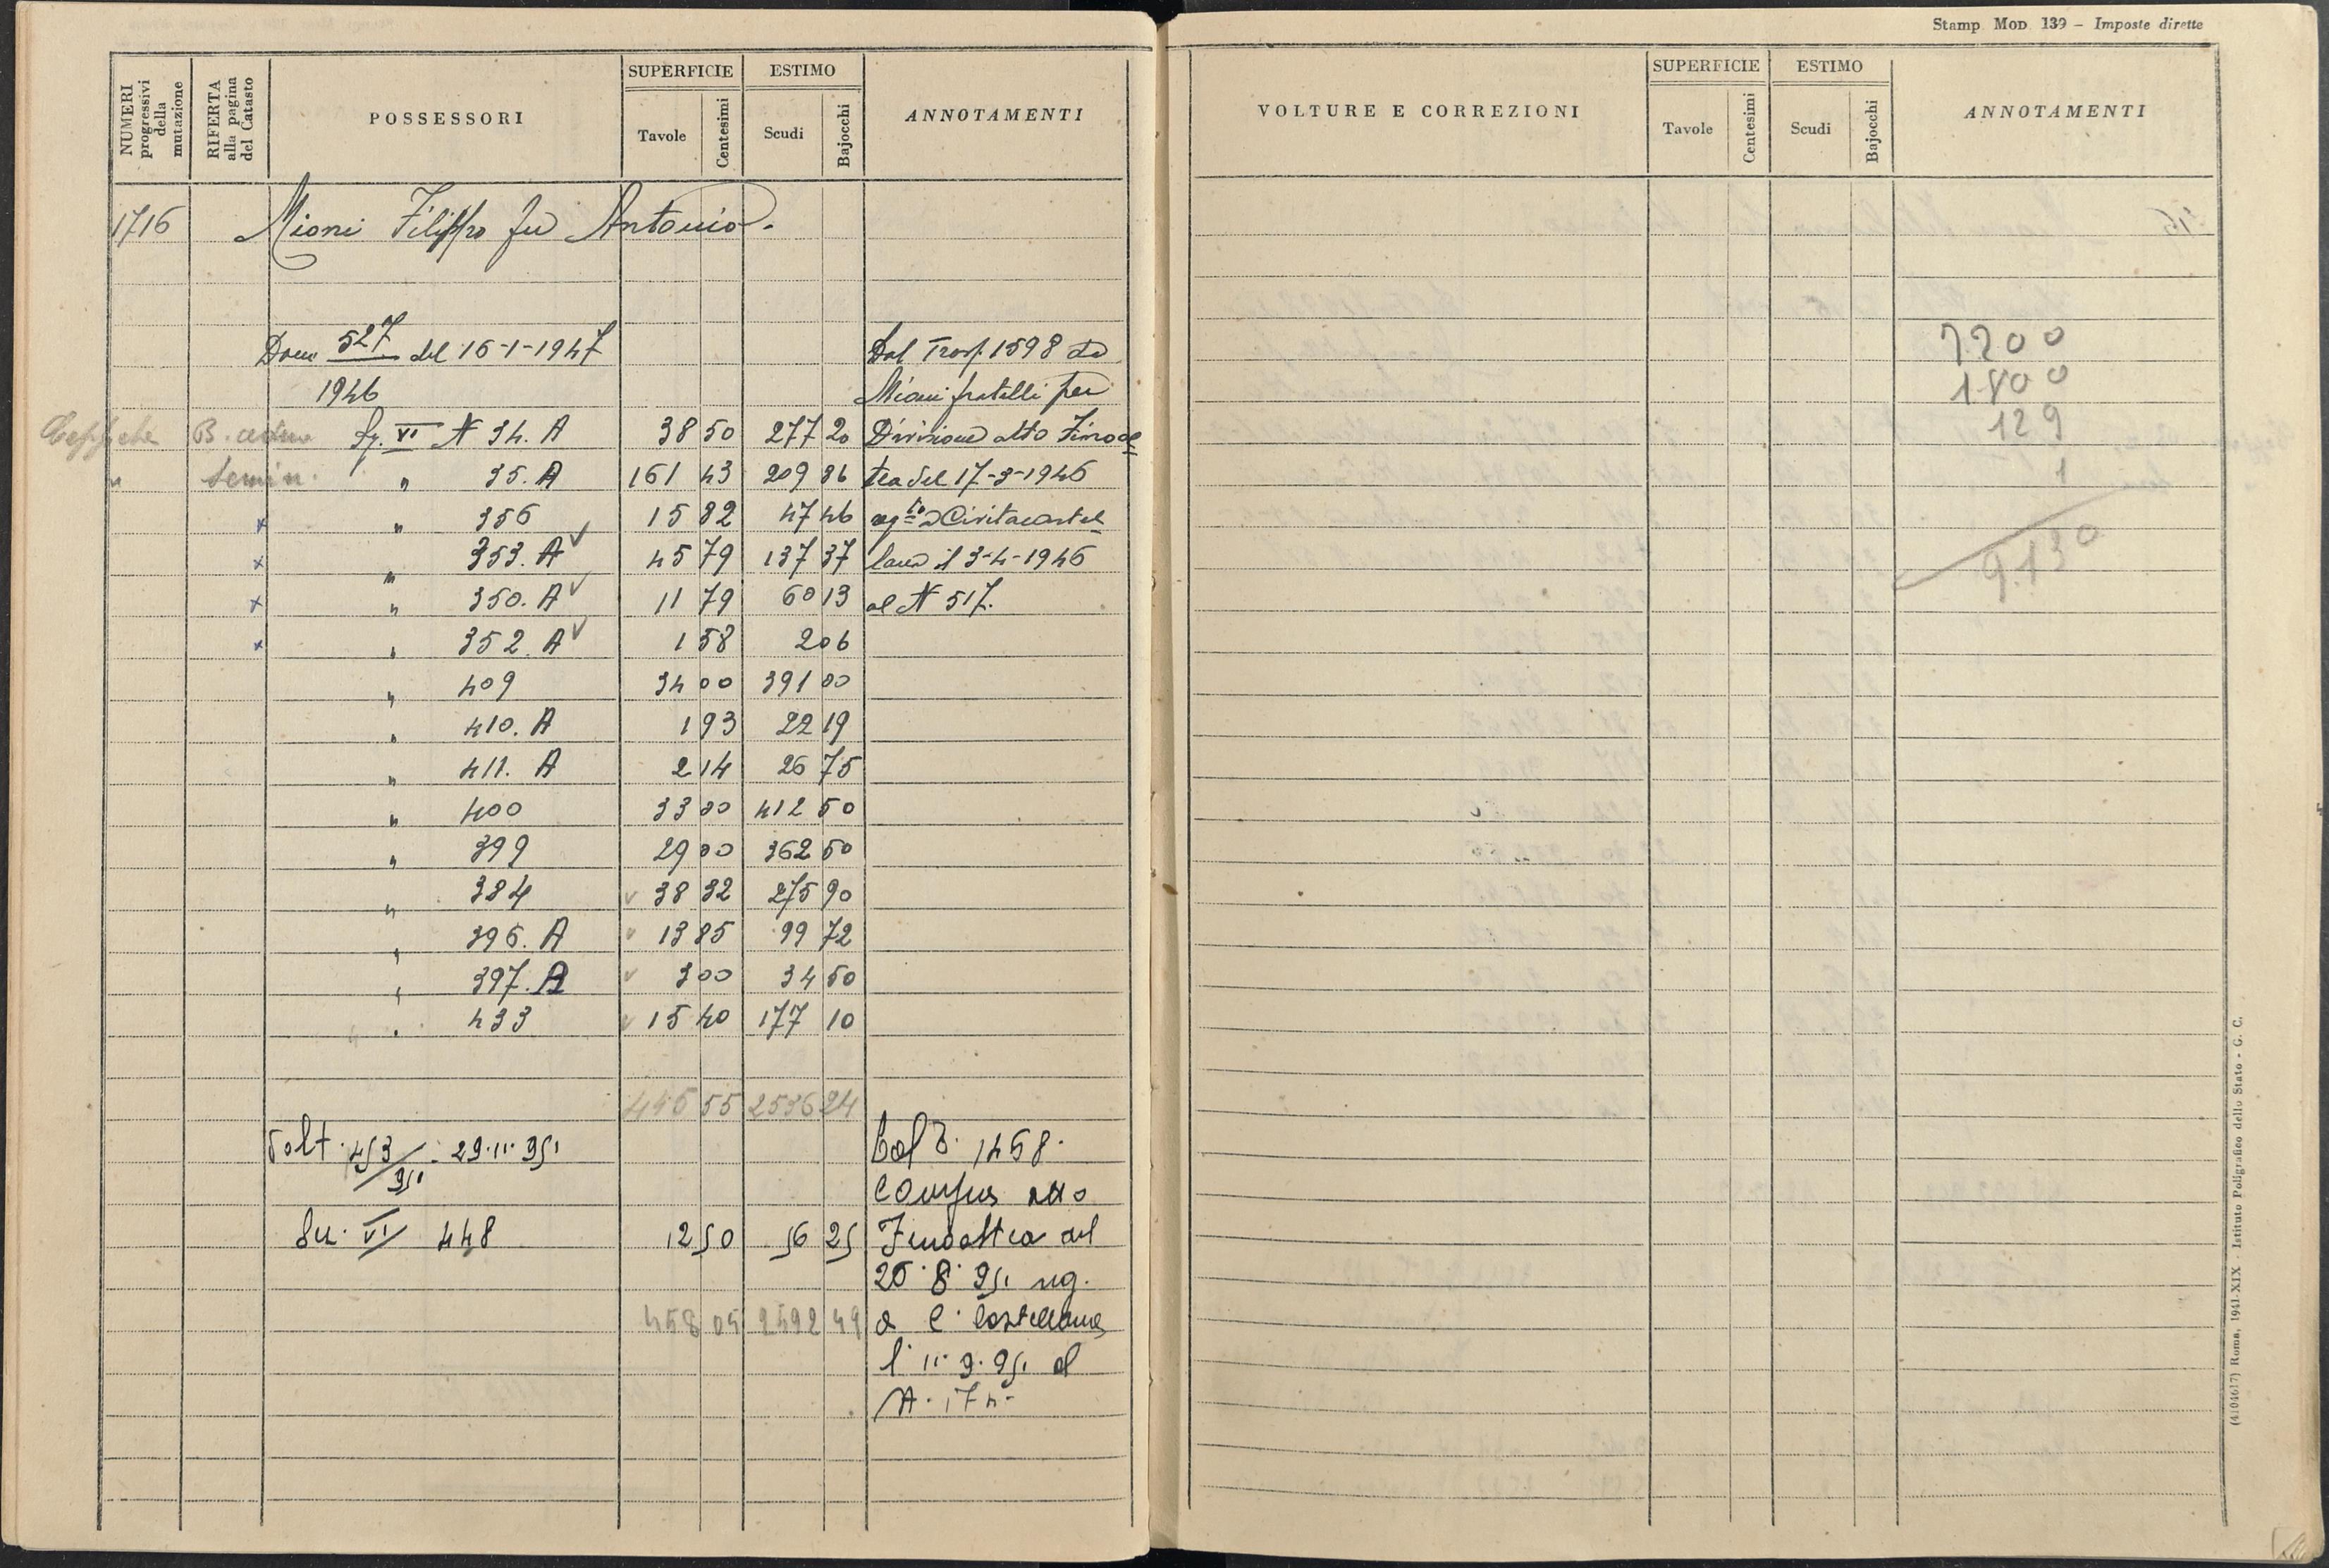 NUMERI progressivi della mutazione
RIFERTA alla pagina del Catasto
POSSESSORI
SUPERFICIE
Tavole Centesimi
ESTIMO
Scudi Bajocchi
ANNOTAMENTI
1716 Mioni Filippo fu Antonio.
Dom 527 del 16-1-1947 Dal Trasp. 1598 da
1946 Mioni fratelli per
B. ceduo Sez. VI N 34. A 38 50 277 20 Divisione atto Finoal
" Semin. " 35. A 161 43 209 86 tea del 17-3-1946
x " 356 15 82 47 46 regto a Civitacastel
x " 353. A ✓ 45 79 137 37 lana il 3-4-1946
x " 350. A ✓ 11 79 60 13 al N 517.
x " 352. A ✓ 1 58 2 06
" 409 34 00 391 00
" 410. A 1 93 22 19
" 411. A 2 14 26 75
" 400 33 00 412 50
" 399 29 00 362 50
" 384 ✓ 38 32 275 90
" 396. A ✓ 13 85 99 72
" 397. A ✓ 3 00 34 50
" 433 ✓ 15 40 177 10
445 55 2536 24
Volt. 453/951 - 29.11.951 Dal T. 1458.
Compra atto
Sez. VI 448 12 50 56 25 Finoaltea del
20.8.951 reg.
458 05 2592 49 a C. Castellana
l'11.9.951 al
N. 174-
Stamp Mod 139 – Imposte dirette
VOLTURE E CORREZIONI
SUPERFICIE
Tavole Centesimi
ESTIMO
Scudi Bajocchi
ANNOTAMENTI
7200
1800
129
1
9.130
(4104617) Roma, 1941-XIX - Istituto Poligrafico dello Stato - G. C.